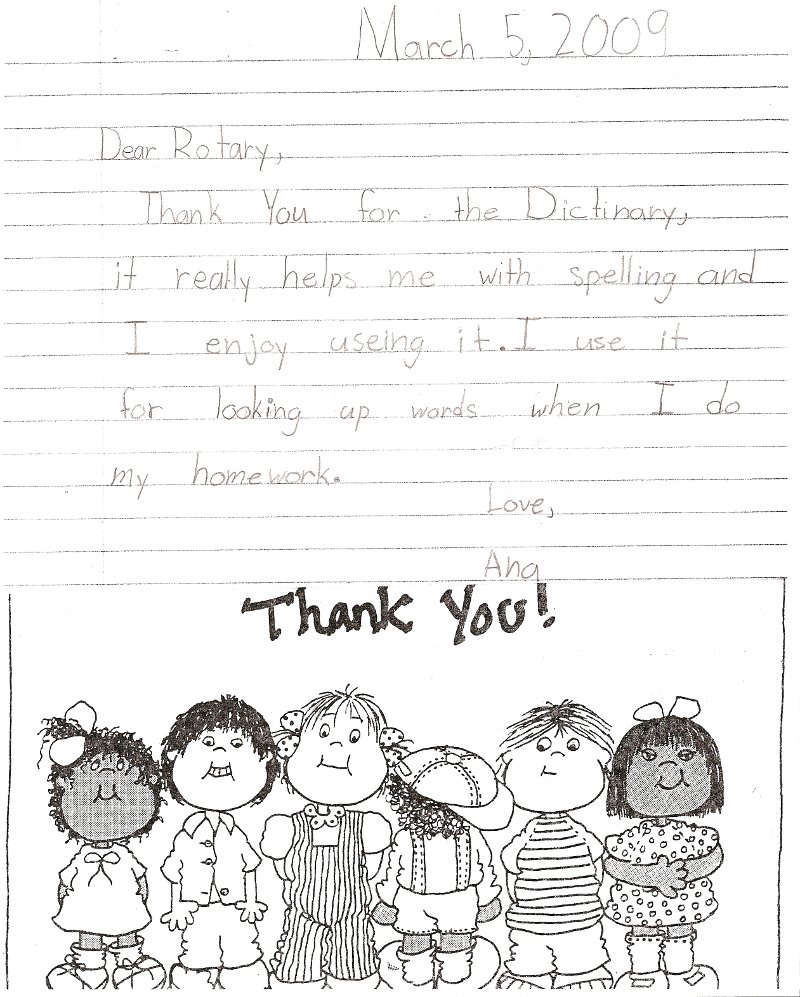 March 5, 2009
Dear Rotary,
Thank You for the Dictinary,
it really helps me with spelling and
I enjoy useing it. I use it
for looking up words when I do
my homework.
Love,
Ana
Thank You!